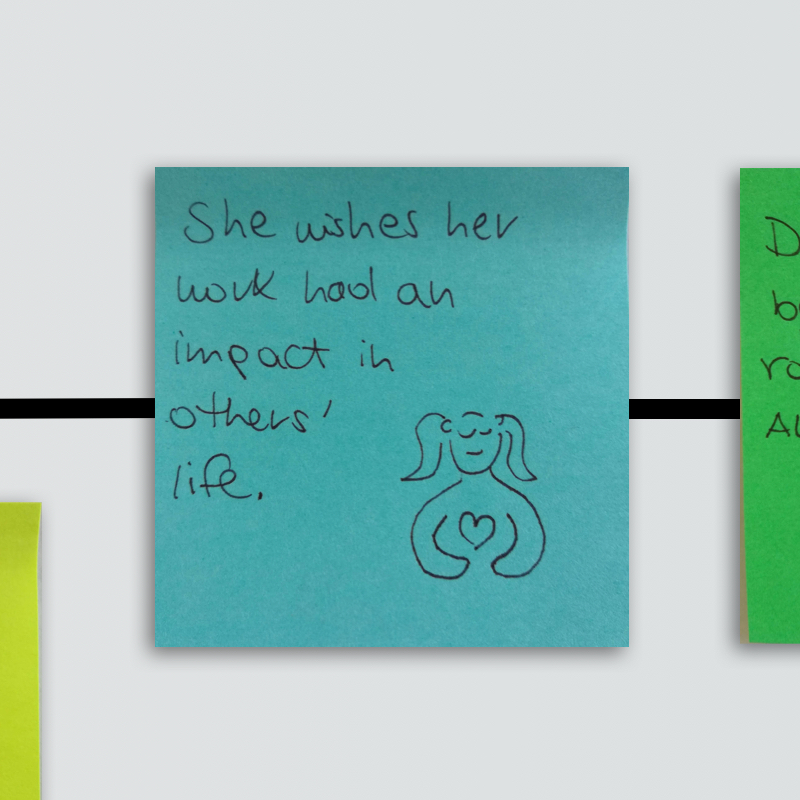 She wishes her
work had an
impact in
others'
life.